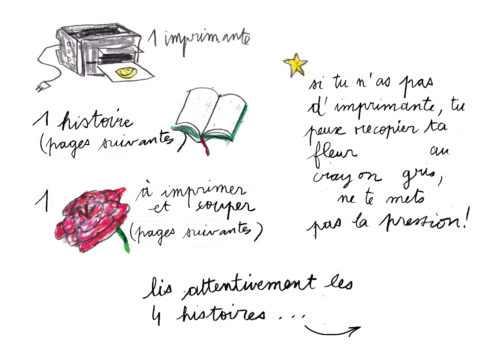 1 imprimante
1 histoire
(pages suivantes)
1 à imprimer
et couper
(pages suivantes)
si tu n'as pas
d'imprimante, tu
peux recopier ta
fleur au
crayon gris,
ne te mets
pas la pression!
lis attentivement les
4 histoires ...